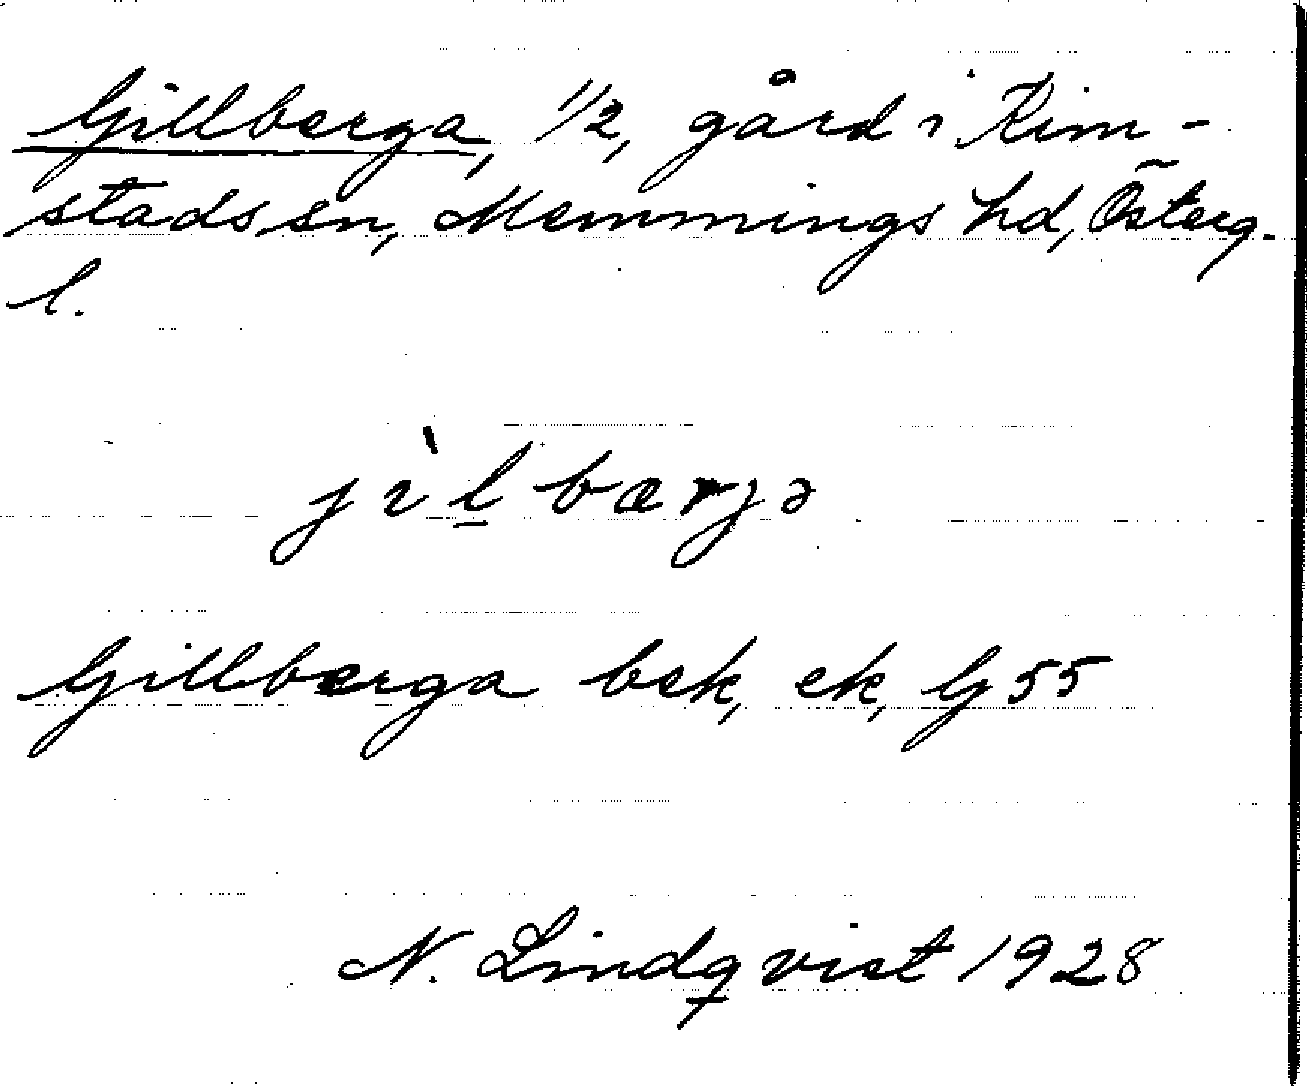 Gillberga, 1/2, gård i Kim-
stads sn, Memmings hd, Österg.
l.
jìl̲bærjə
Gillberga bek, ek, G 55
N. Lindqvist 1928